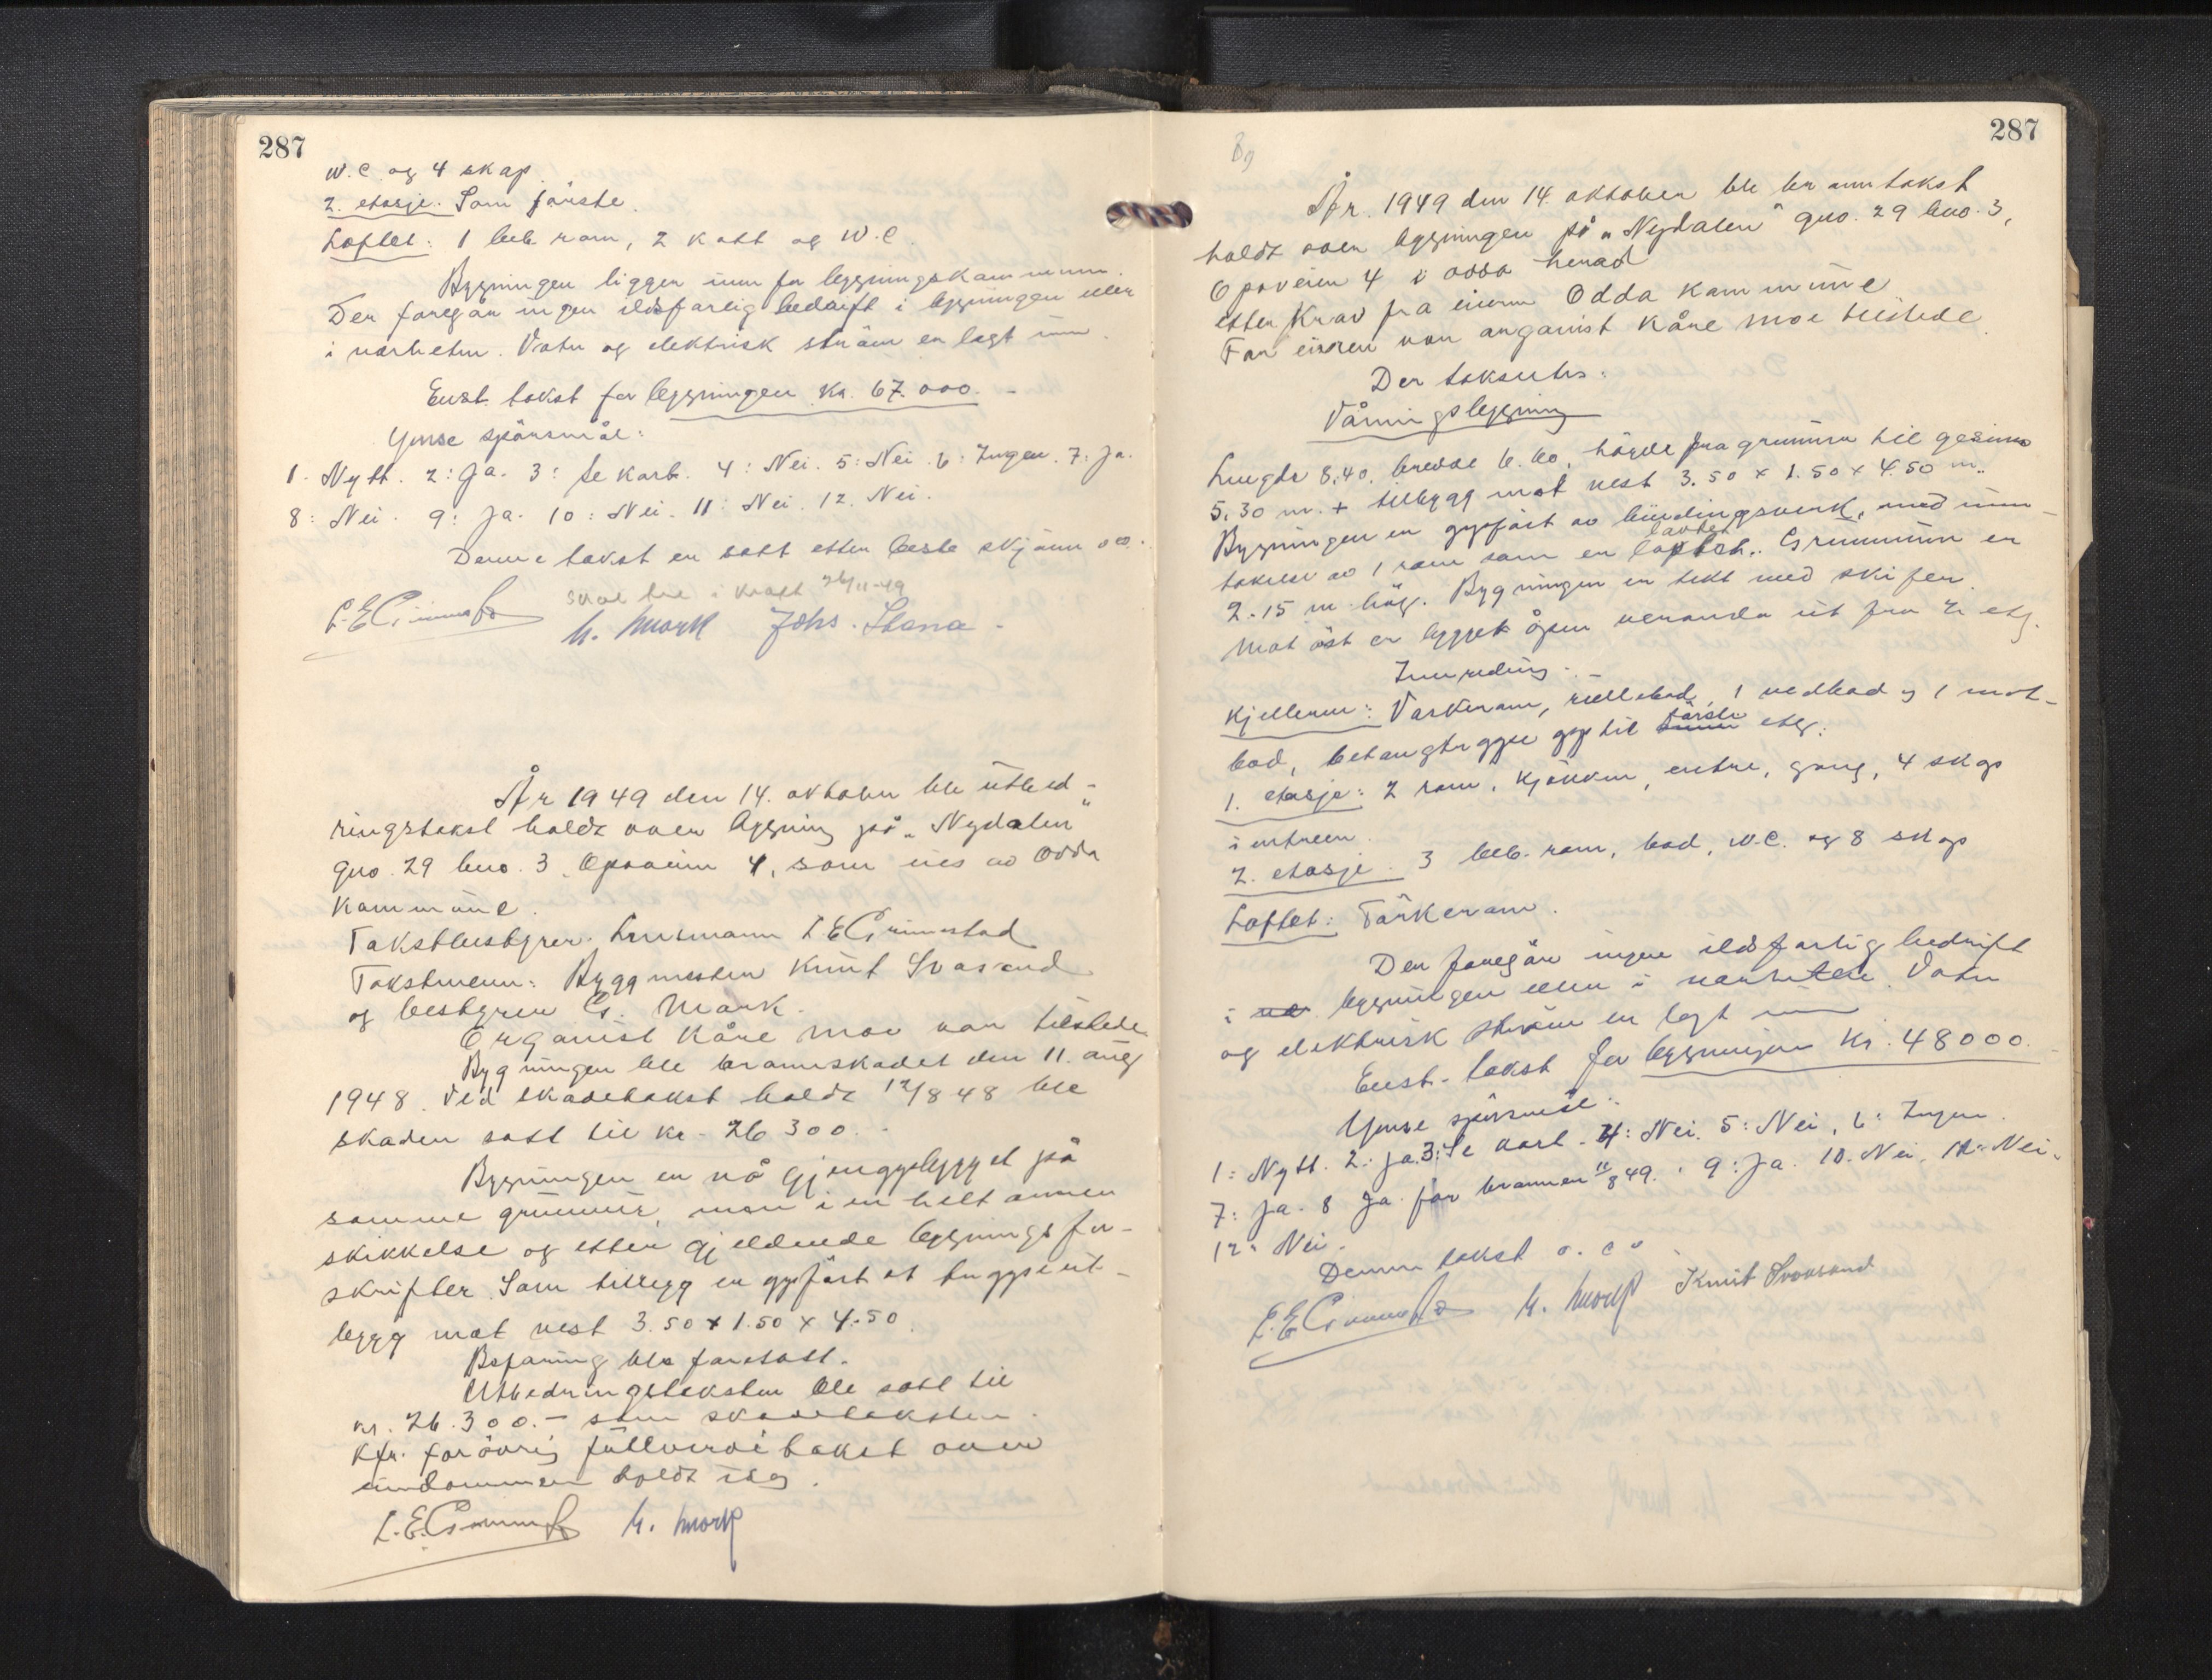 287
W.C. og 4 skap.
2. etasje. Som første.
Loftet: 1 beb. rom, 2 kott og W.C.
Bygningen ligger inn for bygningskommunen.
Der foregår ingen ildsfarlig bedrift i bygningen eller
i nærheten. Vatn og elektrisk strøm er lagt inn.
Enst. takst for bygningen kr. 67.000.-
Ymse spörsmål:
1. Nytt. 2: Ja. 3: Se kart. 4: Nei. 5: Nei. 6: Ingen. 7: Ja.
8: Nei. 9: Ja. 10: Nei. 11: Nei. 12. Nei.
Denne takst er satt etter beste skjønn
Skal tre i kraft 26/11-49
L. E. Grimstad G. Mork Johs.
År 1949 den 14. oktober ble utbed-
ringstakst holdt over bygning på "Nydalen"
gno. 29 bno. 3, Opoveien 4, som eies av Odda
kommune.
Takstbestyrer: Lensmann L E Grimstad
Takstmenn: Byggmester Knut Svåsand
og bestyrer G. Mork.
Organist Kåre Moe var tilstede
Bygningen ble brannskadet den 11. aug
1948. Ved skadetakst holdt 12/8 48 ble
skaden satt til kr. 26 300.-
Bygningen er nå gjenoppbygget på
samme grunnmur, men i en helt annen
skikkelse og etter gjeldende bygningsfor-
skrifter. Som tillegg er oppført et trappeut-
bygg mot vest 3.50 x 1.50 x 4.50.
Befaring ble foretatt.
Utbedringstaksten ble satt til
kr. 26.300.- som skadetaksten.
Kfr. forøvrig fullverditakst over
eiendommen holdt idag.
L. E. Grimstad G. Mork
287
År 1949 den 14. oktober ble branntakst
holdt over bygningen på "Nydalen" gno. 29 bno. 3,
Opoveien 4 i Odda herad
etter krav fra eieren Odda kommune
For eieren var organist Kåre Moe tilstede.
Der takseres:
Våningsbygning
Lengde 8,40, bredde 6.60, høyde fra grunnmur til gesims
5,30 m. + tilbygg mot vest 3.50 x 1.50 x 4.50 m.
Bygningen er oppført av bindingsverk, med unn-
takelse av 1 rom som er laftet. Grunnmuren er
2.15 m. høg. Bygningen er tekt med skifer.
Mot øst er bygget åpen veranda ut fra 2. etg.
Innredning:
Kjelleren: Vaskerom, rullebod, 1 vedbod og 1 mat-
bod, betongtrappe opp til første etg.
1. etasje: 2 rom, kjøkken, entre, gang, 4 skap
i entreen.
2. etasje. 3 beb. rom, bad, W.C. og 8 skap
Loftet: Tørkerom.
Der foregår ingen ildsfarlig bedrift
i bygningen eller i nærheten. Vatn
og elektrisk strøm er lagt inn
Enst. takst for bygningen kr. 48000.-
Ymse spørsmål:
1: Nytt. 2: Ja. 3: Se kart. 4: Nei. 5: Nei, 6: Ingen.
7: Ja. 8 Ja før brannen 11/8 49. 9: Ja. 10. Nei. 11: Nei.
12: Nei.
Denne takst o. s. v.
L. E. Grimstad G. Mork Knut Svåsand